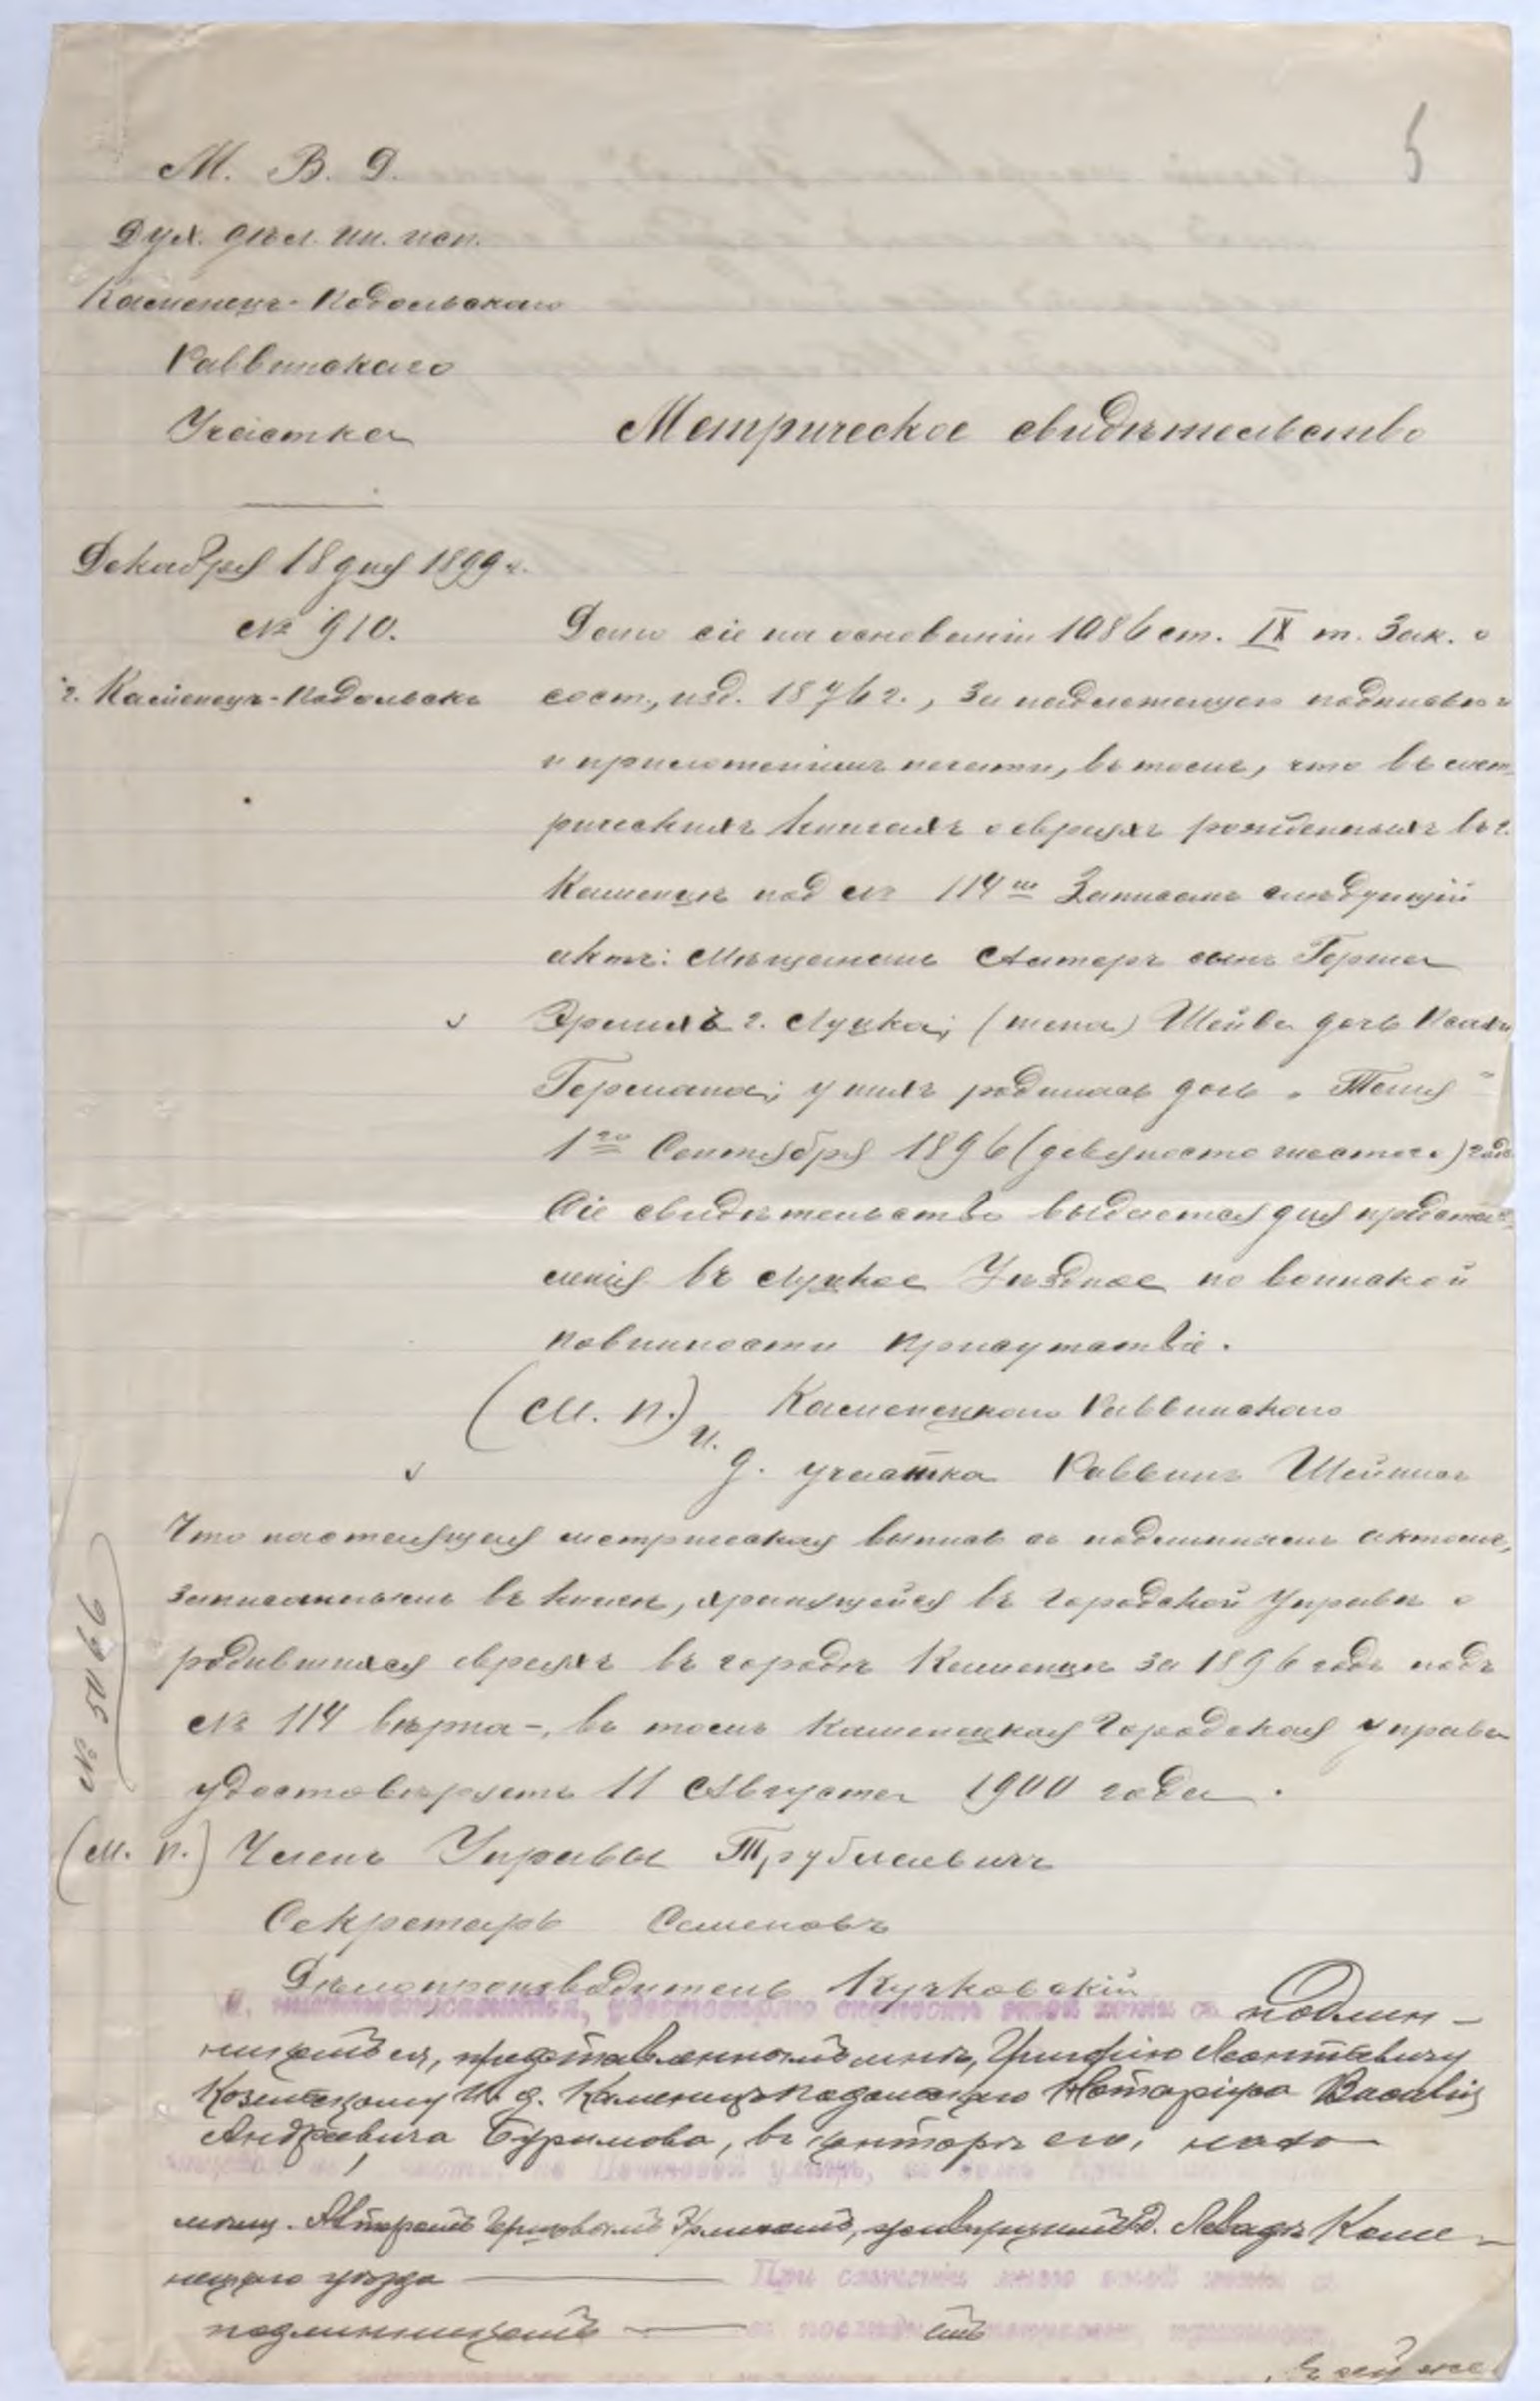 5
М. В. Д.
Дух. дѣл. ин. исп.
Каменецъ-Подольскаго
Раввинскаго
Участка
Метрическое свидѣтельство
Декабря 18 дня 1899 г.
№ 910.
г. Каменецъ-Подольскъ
Дано сіе на основаніи 1086 ст. IX т. Зак. о
сост., изд. 1876 г., за надлежащею подписью
и приложеніемъ печати, въ томъ, что въ мет-
рическихъ книгахъ о евреяхъ рожденныхъ въ г.
Каменцѣ под № 114 м записанъ слѣдующій
актъ: Мѣщанинъ Алтеръ сынъ Герша
Эрлихъ г. Луцка; (жена) Шейва дочь
Германа; у нихъ родилась дочь „Таня"
1го Сентября 1896 (девяносто шестого) года
Сіе свидѣтельство выдается для представ-
ленія въ Луцкое Уѣздное по воинской
повинности присутствіе.
(М. П.) И. Каменецкаго Раввинскаго
д. участка Раввинъ
Что настоящая метрическая выпись съ подлиннымъ актомъ,
записаннымъ въ книгѣ, хранящейся въ Городской Управѣ о
родившихся евреяхъ въ городѣ Каменцѣ за 1896 годъ подъ
№ 114 вѣрна-, въ томъ Каменецкая Городская Управа
удостовѣряетъ 11 Августа 1900 года.
№ 5066
(М. П.) Членъ Управы
Секретарь Семеновъ
Дѣлопроизводитель Кучковскій
подлин-
никомъ ея, представленнымъ мнѣ, Григорію Леонтьевичу
И. д. Каменецъ-Подольскаго Нотаріуса Василія
Андреевича Буримова, въ конторѣ его, нахо
Каме-
нецкаго уѣзда
При сличеніи
подлинникомъ
въ ней не